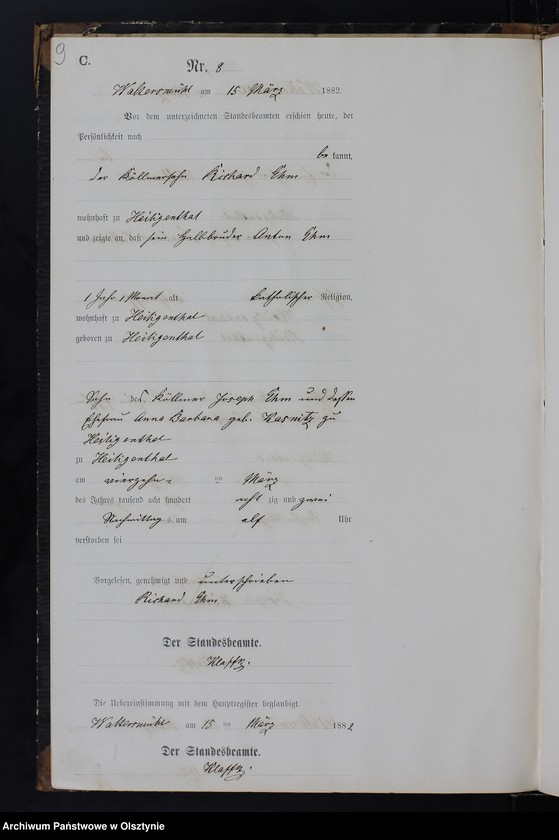 9
C.
Nr. 8
Waltersmühl am 15 März 1882.
Vor dem unterzeichneten Standesbeamten erschien heute, der
Persönlichkeit nach
be kannt,
der Köllmersohn Richard Ehm
wohnhaft zu Heiligenthal
und zeigte an, daß sein Halbbruder Anton Ehm
1 Jahr 1 Monat alt katholischer Religion,
wohnhaft zu Heiligenthal
geboren zu Heiligenthal
Sohn des Köllmer Joseph Ehm und dessen
Ehefrau Anna Barbara geb. Kasnitz zu
Heiligenthal
zu Heiligenthal
am vierzehn= ten März
des Jahres tausend acht hundert acht zig und zwei
Nachmittag s um elf Uhr
verstorben sei
Vorgelesen, genehmigt und unterschrieben
Richard Ehm
Der Standesbeamte.
Klafft.
Die Uebereinstimmung mit dem Hauptregister beglaubigt.
Waltersmühl am 15 ten März 1882
Der Standesbeamte.
Klafft.
Archiwum Państwowe w Olsztynie